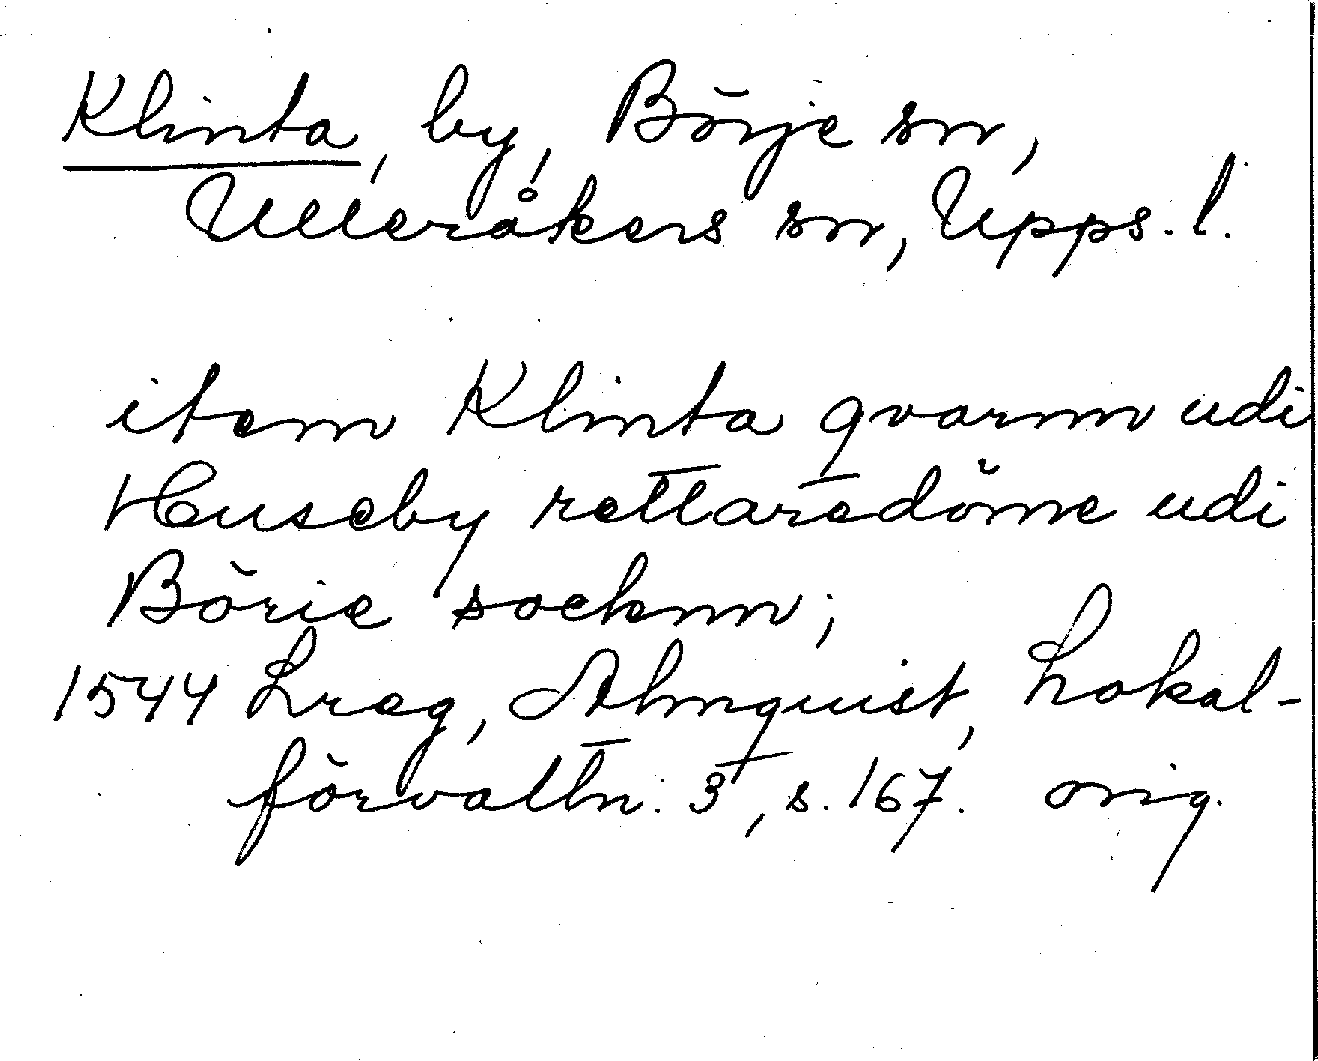 Klinta, by, Börje sn,
Ulleråkers sn, Upps. l.
item Klinta qvarnn udi
Huseby rettaredöme udi
Börie socknn;
1544 Lreg, Almquist, Lokal-
förvaltn. 3, s. 167. orig.